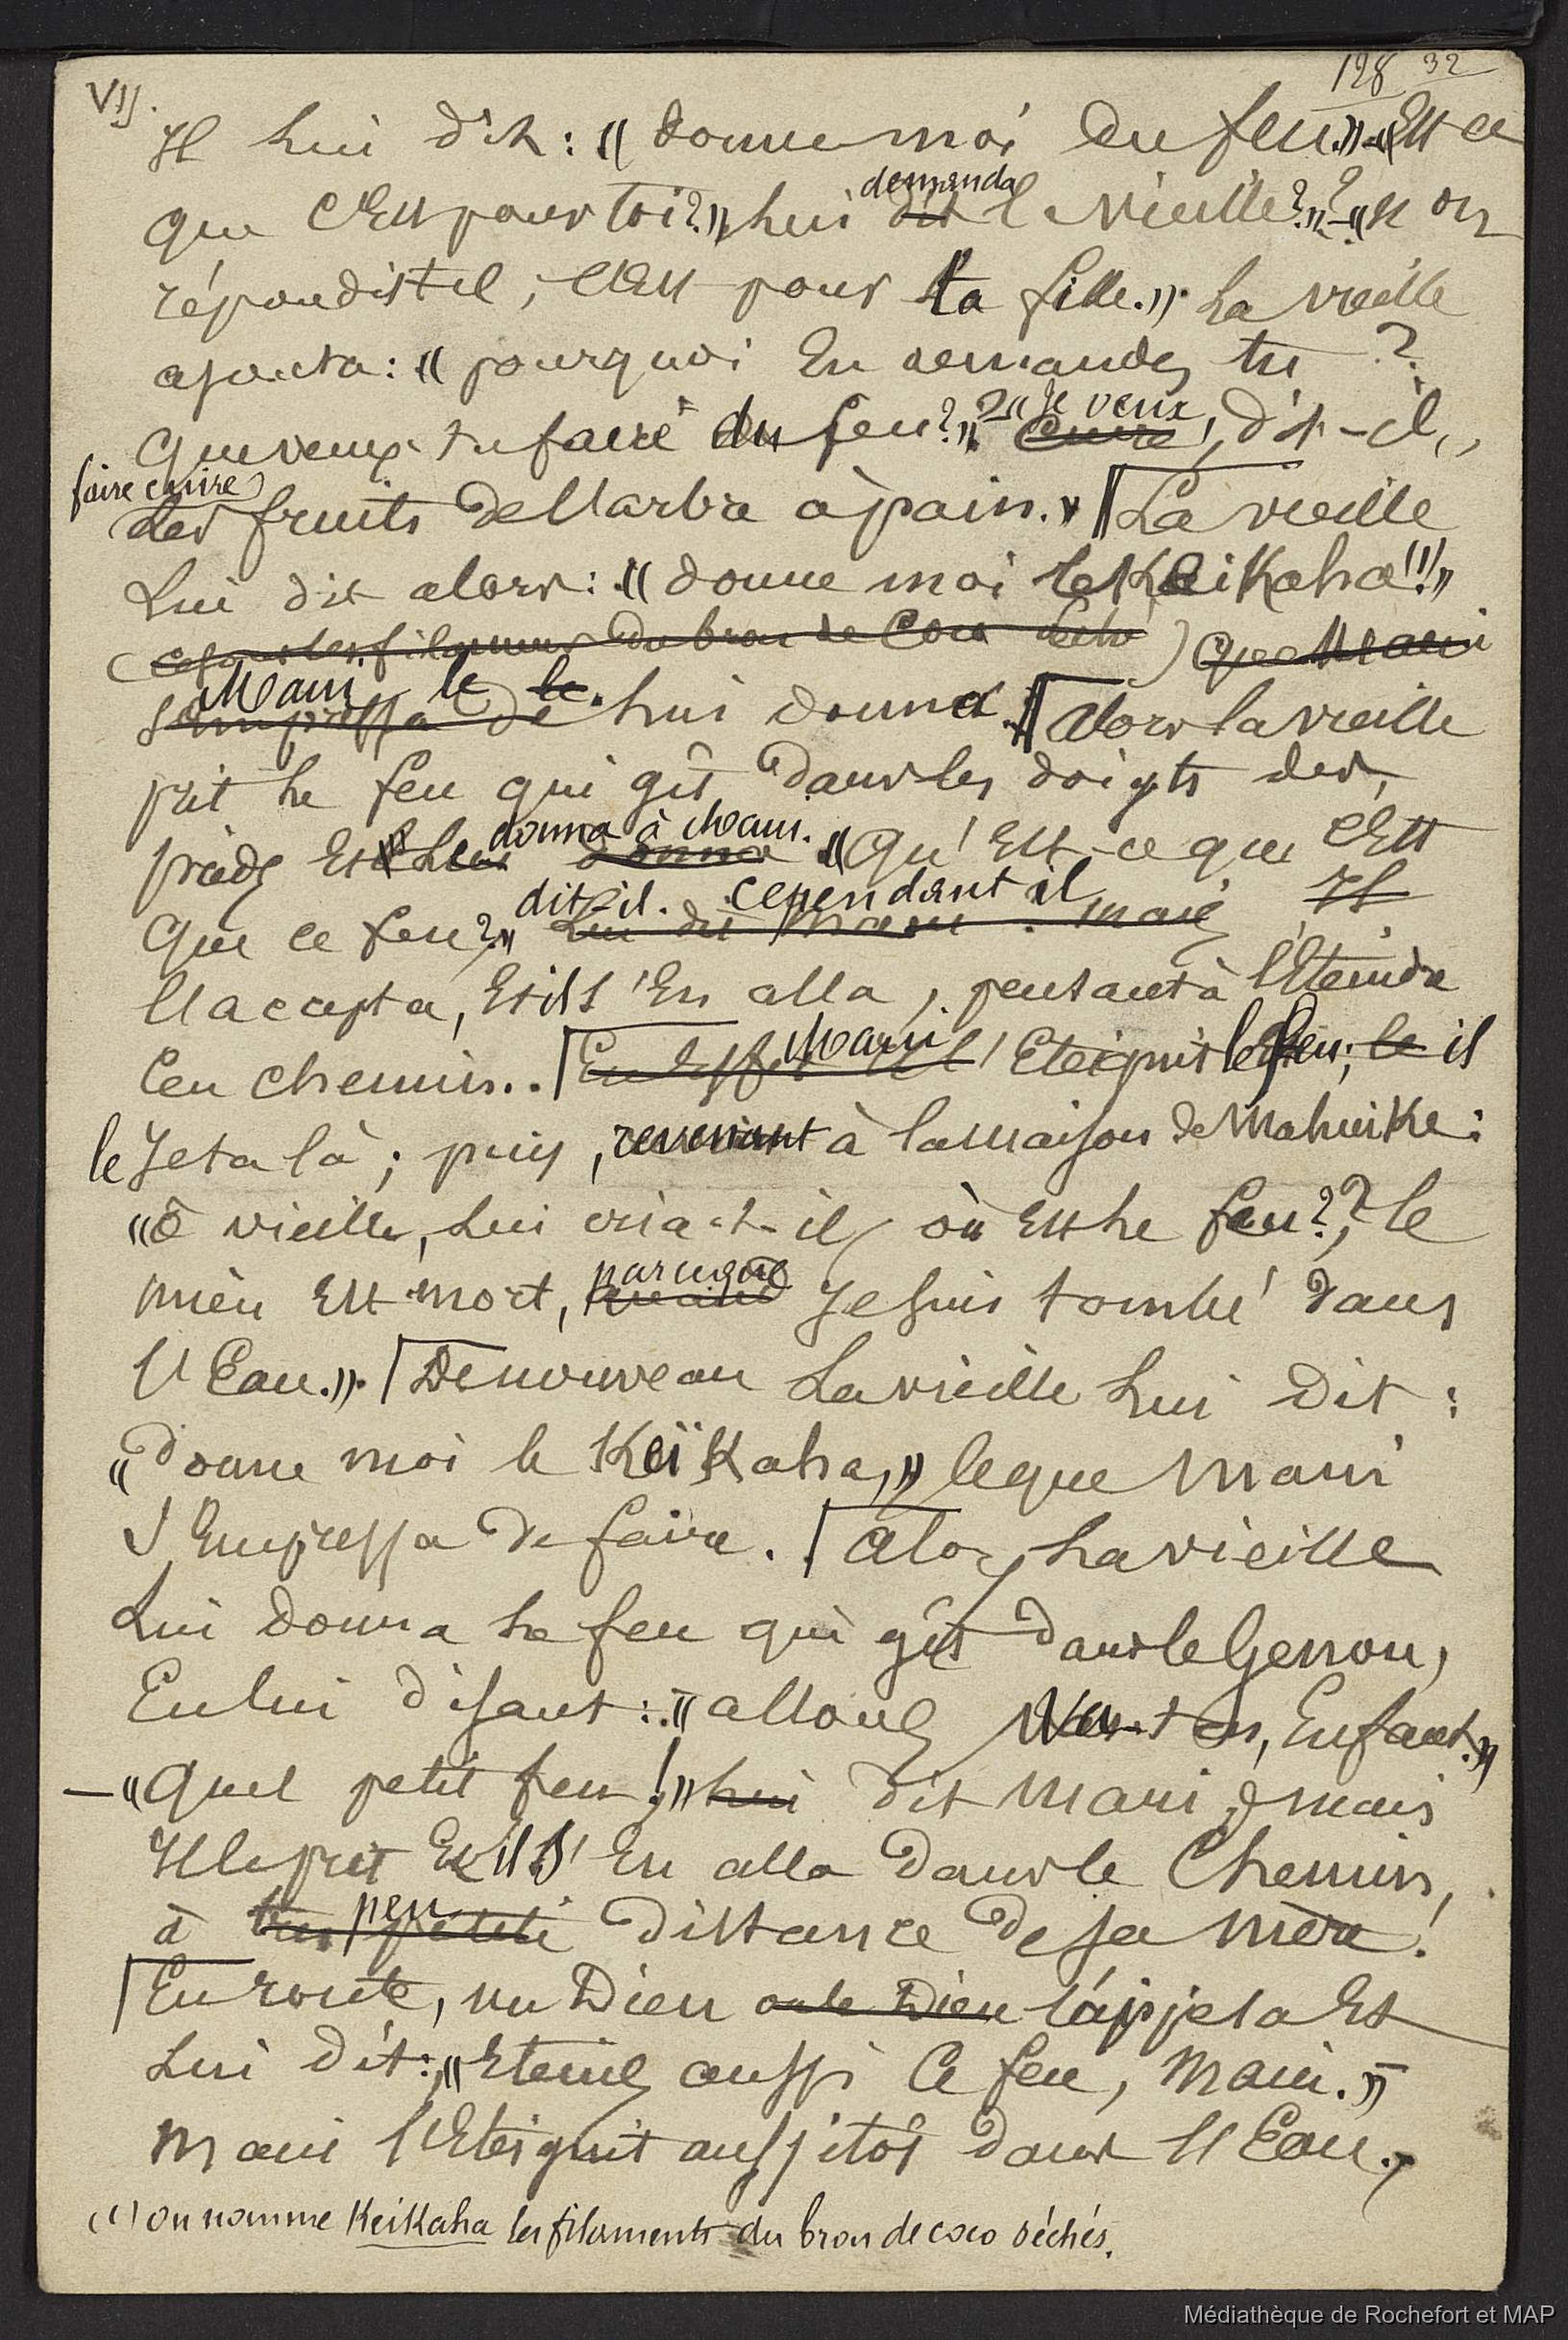 VIJ.
128 32
Il lui dit : « donne moi du feu. » - « Est ce
que c'est pour toi ? » lui dit demanda l vieille ? » - « non
répondit il, c'est pour ta fille. » La vieille
ajouta : « pourquoi en demandes tu ?
Que veux-tu faire du feu ? » « Je veux cuire, dit-il,
faire cuire
des fruits de l'arbre à pain. » La vieille
Lui dit alors : « donne moi le Keikaha (1) ! »
( ce sont les filaments du brou de coco ) que Maui
s'empressa de Maui le le lui donna. Alors la vieille
prit le feu qui gît dans les doigts des
pieds et le lui donna donna à Maui. « Qu'est-ce que c'est
que ce feu ? » lui dit Maui. mais dit-il. cependant il Il
l'accepta, et il s'en alla, pensant à l'éteindre
en chemin.. En effet il Maui l'éteignit le feu ; le il
le jeta là ; puis, revenant à la maison de Mahuike :
« ô vieille, lui cria-t-il, où est le feu ? , le
mien est mort, quand parceque je suis tombé dans
l'Eau. » De nouveau La vieille lui dit :
« Donne moi le Keïkaha, » le que Maui
s'empressa de faire. Alors, la vieille
Lui donna le feu qui gît dans le Genou,
En lui disant : « allons Va-t en, Enfant. »
— « Quel petit feu ! » lui dit Maui, mais
Il le prit et il s'en alla dans le Chemin,
à très petite peu distance de sa mère !
En route, un Dieu ou le Dieu l'appela et
Lui dit : « Eteins aussi ce feu, Maui. »
Maui l'Eteignit aussitôt dans l'Eau.
(1) on nomme Keikaha les filaments du brou de coco séchés.
Médiathèque de Rochefort et MAP